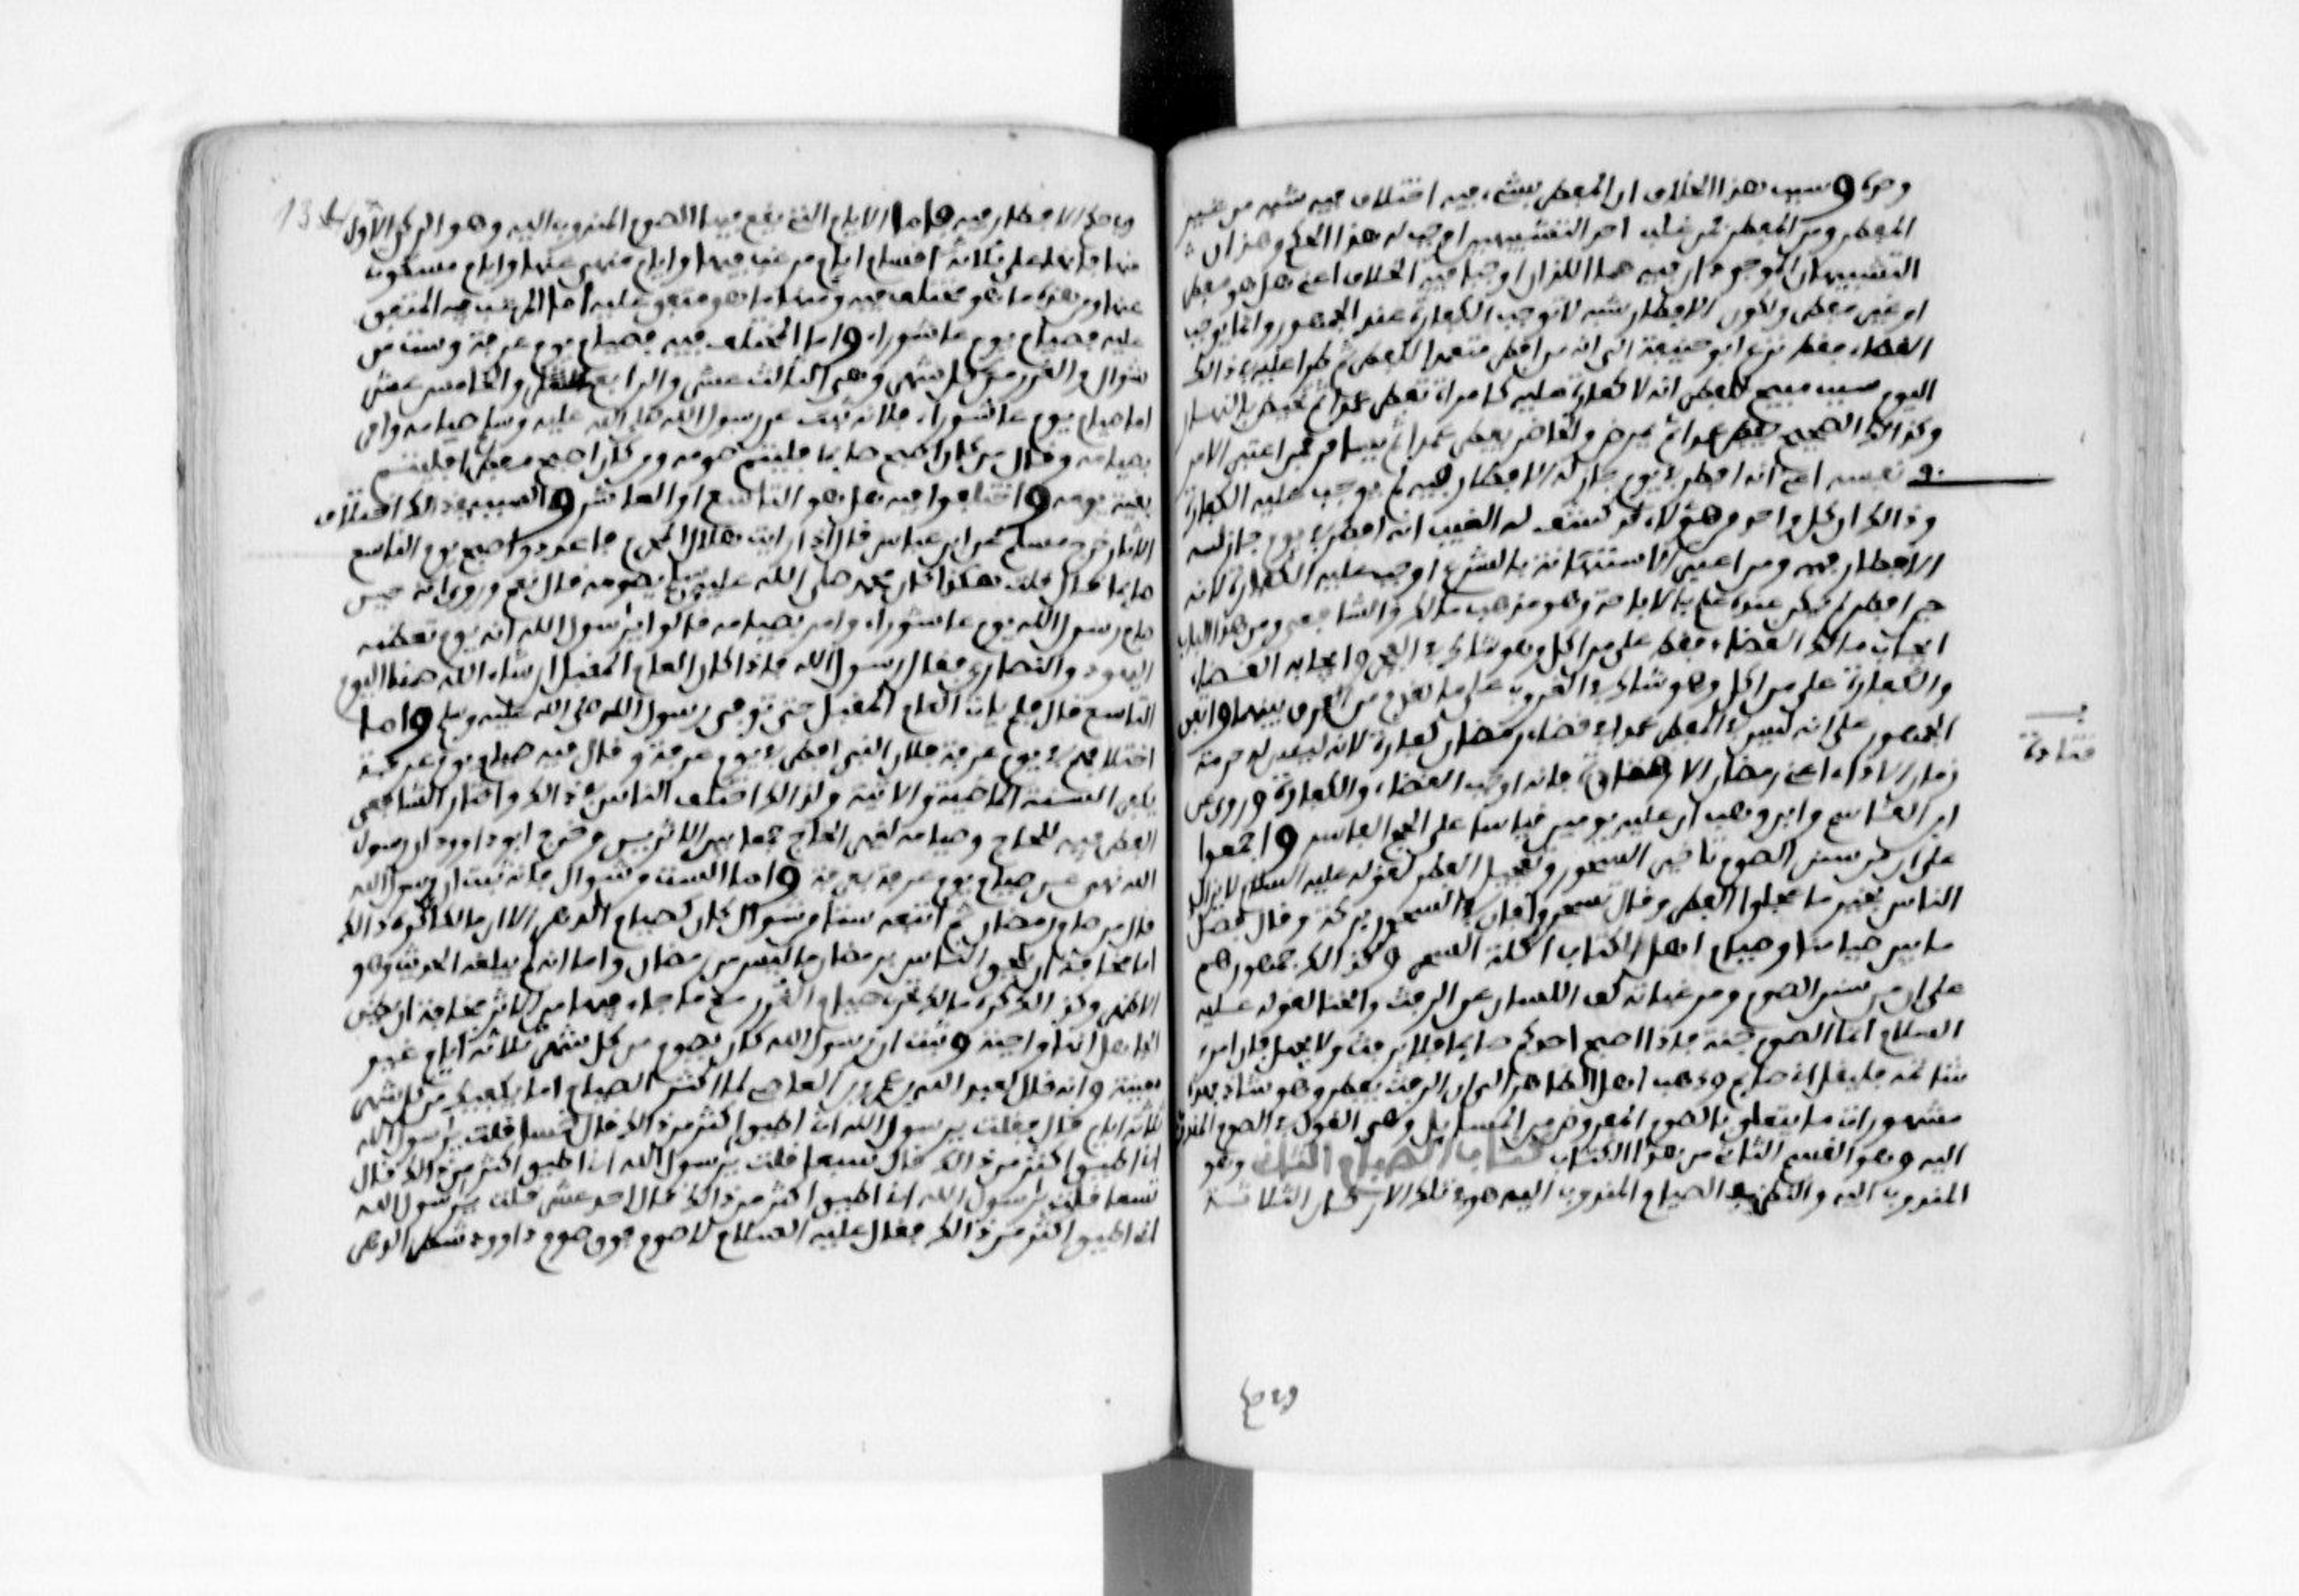 وحده وسبب هذا الخلاف ان المفطر بشيء فيه اختلاف فيه شبه من غير
المفطر ومن المفطر فمن غلب احد الشبهين اوجب له هذا الحكم وهذان
الشبهان الموجودان فيه هما اللذان اوجبا فيه الخلاف اعني هل هو مفطر
او غير مفطر ولكون الافطار شبهة لا توجب الكفارة عند الجمهور وانما يوجب
القضاء فقط نزع ابو حنيفة الى انه من افطر متعمدا للفطر ثم طرا عليه في ذالك
اليوم سبب مبيح للفطر انه لا كفارة عليه كالمراة تفطر عمدا ثم تحيض بالنهار
وكذالك الصحيح يفطر عمدا ثم يمرض والحاضر يفطر عمدا ثم يسافر فمن اعتبر الامر
في نفسه اعني انه افطر في يوم جاز له الافطار فيه لم يوجب عليه الكفارة
وذالك ان كل واحد من هؤلاء قد كشف له الغيب انه افطر في يوم جاز له
الافطار فيه ومن اعتبر الاستهانة بالشرع اوجب عليه الكفارة لانه
حين افطر لم يكن عنده علم بالاباحة وهو مذهب مالك والشافعي ومن هذا الباب
ايجاب مالك القضاء فقط على من اكل وهو شاك في الفجر وايجابه القضاء
والكفارة على من اكل وهو شاك في الغروب على ما تقدم من الفرق بينهما واتفق
الجمهور على انه ليس في الفطر عمدا في قضاء رمضان كفارة لانه ليس له حرمة
زمان الاداء اعني رمضان الا قتادة فانه اوجب القضاء والكفارة وروي عن
ابن القاسم وابن وهب ان عليه يومين قياسا على الحج الفاسد واجمعوا
على ان من سنن الصوم تاخير السحور وتعجيل الفطر لقوله عليه السلام لا يزال
الناس بخير ما عجلوا الفطر وقال تسحروا فان في السحور بركة وقال فصل
ما بين صيامنا وصيام اهل الكتاب اكلة السحر وكذالك جمهورهم
على ان من سنن الصوم ومرغباته كف اللسان عن الرفث والخنا لقوله عليه
السلام انما الصوم جنة فاذا اصبح احدكم صايما فلا يرفث ولا يجهل فان امرؤ
شاتمه فليقل اني صايم وذهب اهل الظاهر الى ان الرفث يفطر وهو شاذ فهذه
مشهورات ما يتعلق بالصوم المفروض من المسايل وبقي القول في الصوم المندوب
اليه وهو القسم الثاني من هذا الكتاب كتاب الصيام الثاني وهو
المندوب اليه والنظر في الصيام المندوب اليه هو في تلك الاركان الثلاثة
قتادة
وفي حكم الافطار فيه واما الايام التي يقع فيها الصوم المندوب اليه وهو الركن الاول
منها فانها على ثلاثة اقسام ايام مرغب فيها وايام منهي عنها وايام مسكوت
عنها ومن هذه ما هو مختلف فيه ومنها ما هو متفق عليه اما المرغب فيه المتفق
عليه فصيام يوم عاشوراء واما المختلف فيه فصيام يوم عرفة وست من
شوال والغرر من كل شهر وهي الثالث عشر والرابع عشر والخامس عشر
اما صيام يوم عاشوراء فلانه ثبت عن رسول الله صلى الله عليه وسلم صيامه وامر
بصيامه وقال من كان اصبح صايما فليتم صومه ومن كان اصبح مفطرا فليتم
بقية يومه واختلفوا فيه هل هو التاسع او العاشر والسبب في ذالك اختلاف
الاثار خرج مسلم عن ابن عباس قال اذا رايت هلال المحرم فاعدد واصبح يوم التاسع
صايما قال قلت هكذا كان محمد صلى الله عليه وسلم يصومه قال نعم وروي انه حين
صام رسول الله يوم عاشوراء وامر بصيامه قالوا يرسول الله انه يوم تعظمه
اليهود والنصارى فقال رسول الله فاذا كان العام المقبل ان شاء الله صمنا اليوم
التاسع قال فلم يات العام المقبل حتى توفي رسول الله صلى الله عليه وسلم واما
اختلافهم في يوم عرفة فلان النبي افطر في يوم عرفة وقال فيه صيام يوم عرفة
يكفر السنة الماضية والاتية ولذالك اختلف الناس في ذالك واختار الشافعي
الفطر فيه للحاج وصيامه لغير الحاج جمعا بين الاثرين وخرج ابو داوود ان رسول
الله نهى عن صيام يوم عرفة بعرفة واما الست من شوال فانه ثبت ان رسول الله
قال من صام رمضان ثم اتبعه ستا من شوال كان كصيام الدهر الا ان مالكا كره ذالك
اما مخافة ان يلحق الناس برمضان ما ليس من رمضان واما انه لم يبلغه الحديث وهو
الاظهر وكذالك كره مالك تحري صيام الغرر مع ما جاء فيها من الاثر مخافة ان يظن
الجاهل انها واجبة وثبت ان رسول الله كان يصوم من كل شهر ثلاثة ايام غير
معينة وانه قال لعبد الله بن عمرو بن العاصي لما اكثر الصيام اما يكفيك من كل شهر
ثلاثة ايام قال فقلت يرسول الله اني اطيق اكثر من ذالك قال خمسا قلت يرسول الله
اني اطيق اكثر من ذالك قال سبعا قلت يرسول الله اني اطيق اكثر من ذالك قال
تسعا قلت يرسول الله اني اطيق اكثر من ذالك قال احد عشر قلت يرسول الله
اني اطيق اكثر من ذالك فقال عليه السلام لا صوم فوق صوم داوود شطر الدهر